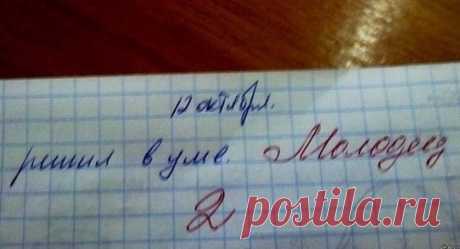 12 октября.
решил в уме. Молодец
2
postila.ru